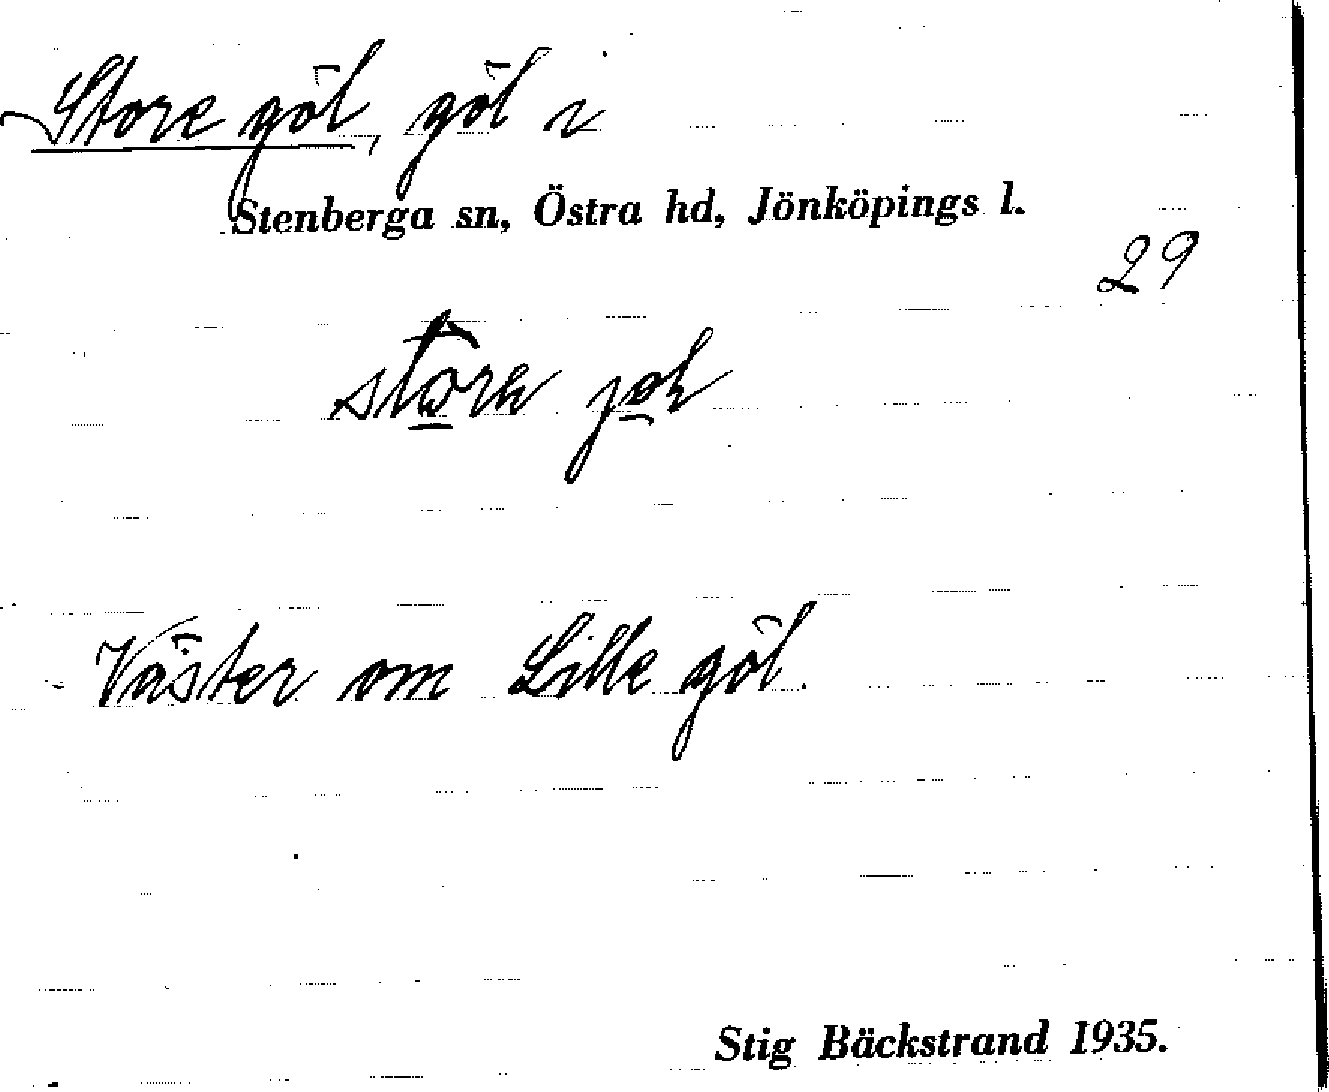 Store göl, göl i
Stenberga sn, Östra hd, Jönköpings l.
29
Väster om Lille göl.
Stig Bäckstrand 1935.